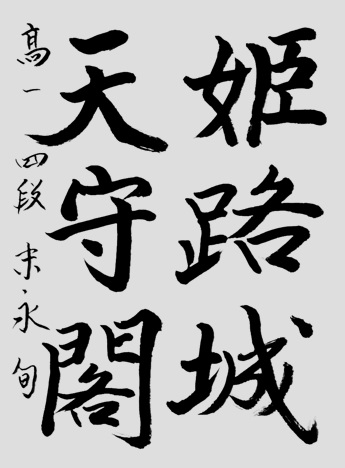 姫路城
天守閣
高一 四段 末永旬